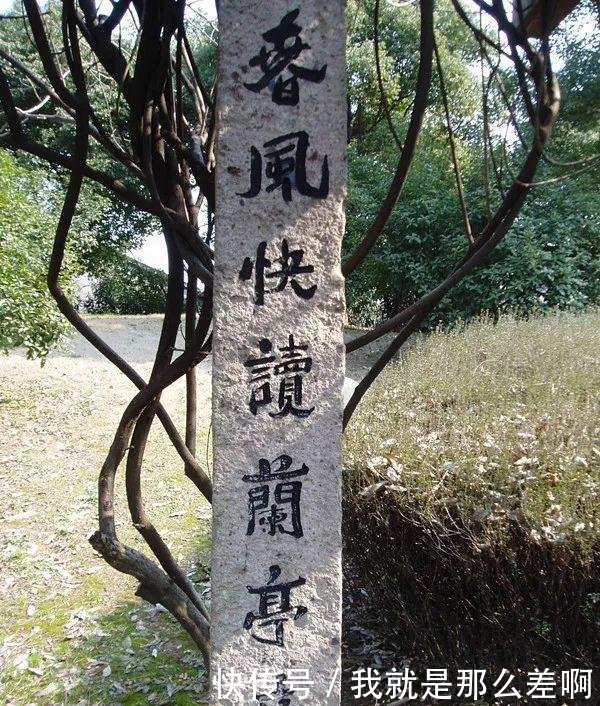 春風快讀蘭亭
快传号 / 我就是那么差啊